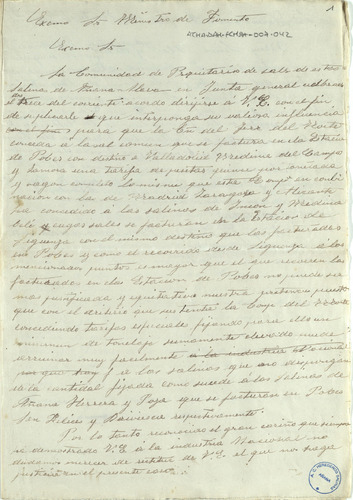 Excmo Sr Ministro de Fomento
1
ATHADAH-FCHM-009-042
Excmo Sr
La Comunidad de Propietarios de sal de estas
salinas de Añana-Alava en Junta general celebrada
el trece del corriente acordó dirigirse á V.E. con el fin
de suplicarle que interponga su valiosa influencia
para que la Cia del ferro del Norte
conceda á la sal comun que se factura en la Estacion
de Pobes con destino á Valladolid Medina del Campo
y Zamora una tarifa de pesetas por tonelada
y vagon completo lo mismo que esta Comp.ª en combi
nacion con la de Madrid Zaragoza y Alicante
ha concedido á las salinas de Imon y Medina
celi cuyas sales se facturan en la Estacion de
Siguenza con el mismo destino que las facturadas
en Pobes y como el recorrido desde Siguenza á los
mencionados puntos es mayor que el que recorren las
facturadas en esta Estacion de Pobes no puede ser
mas justificada y equitativa nuestra pretension puesto
que con el criterio que sustenta la Comp. del Norte
concediendo tarifas especiales fijando para ello un
minimum de tonelaje sumamente elevado puede
arruinar muy facilmente á la industria
á las salinas que no dispongan
de la cantidad fijada como sucede á las salinas de
Añana Herrera y Poza que se facturan en Pobes
San Felices y Briviesca respectivamente.
Por lo tanto reconocido el gran cariño que siempre
ha demostrado V.E. á la industria Nacional no
dudamos merecer de V.E. el que nos haga
justicia en el presente caso